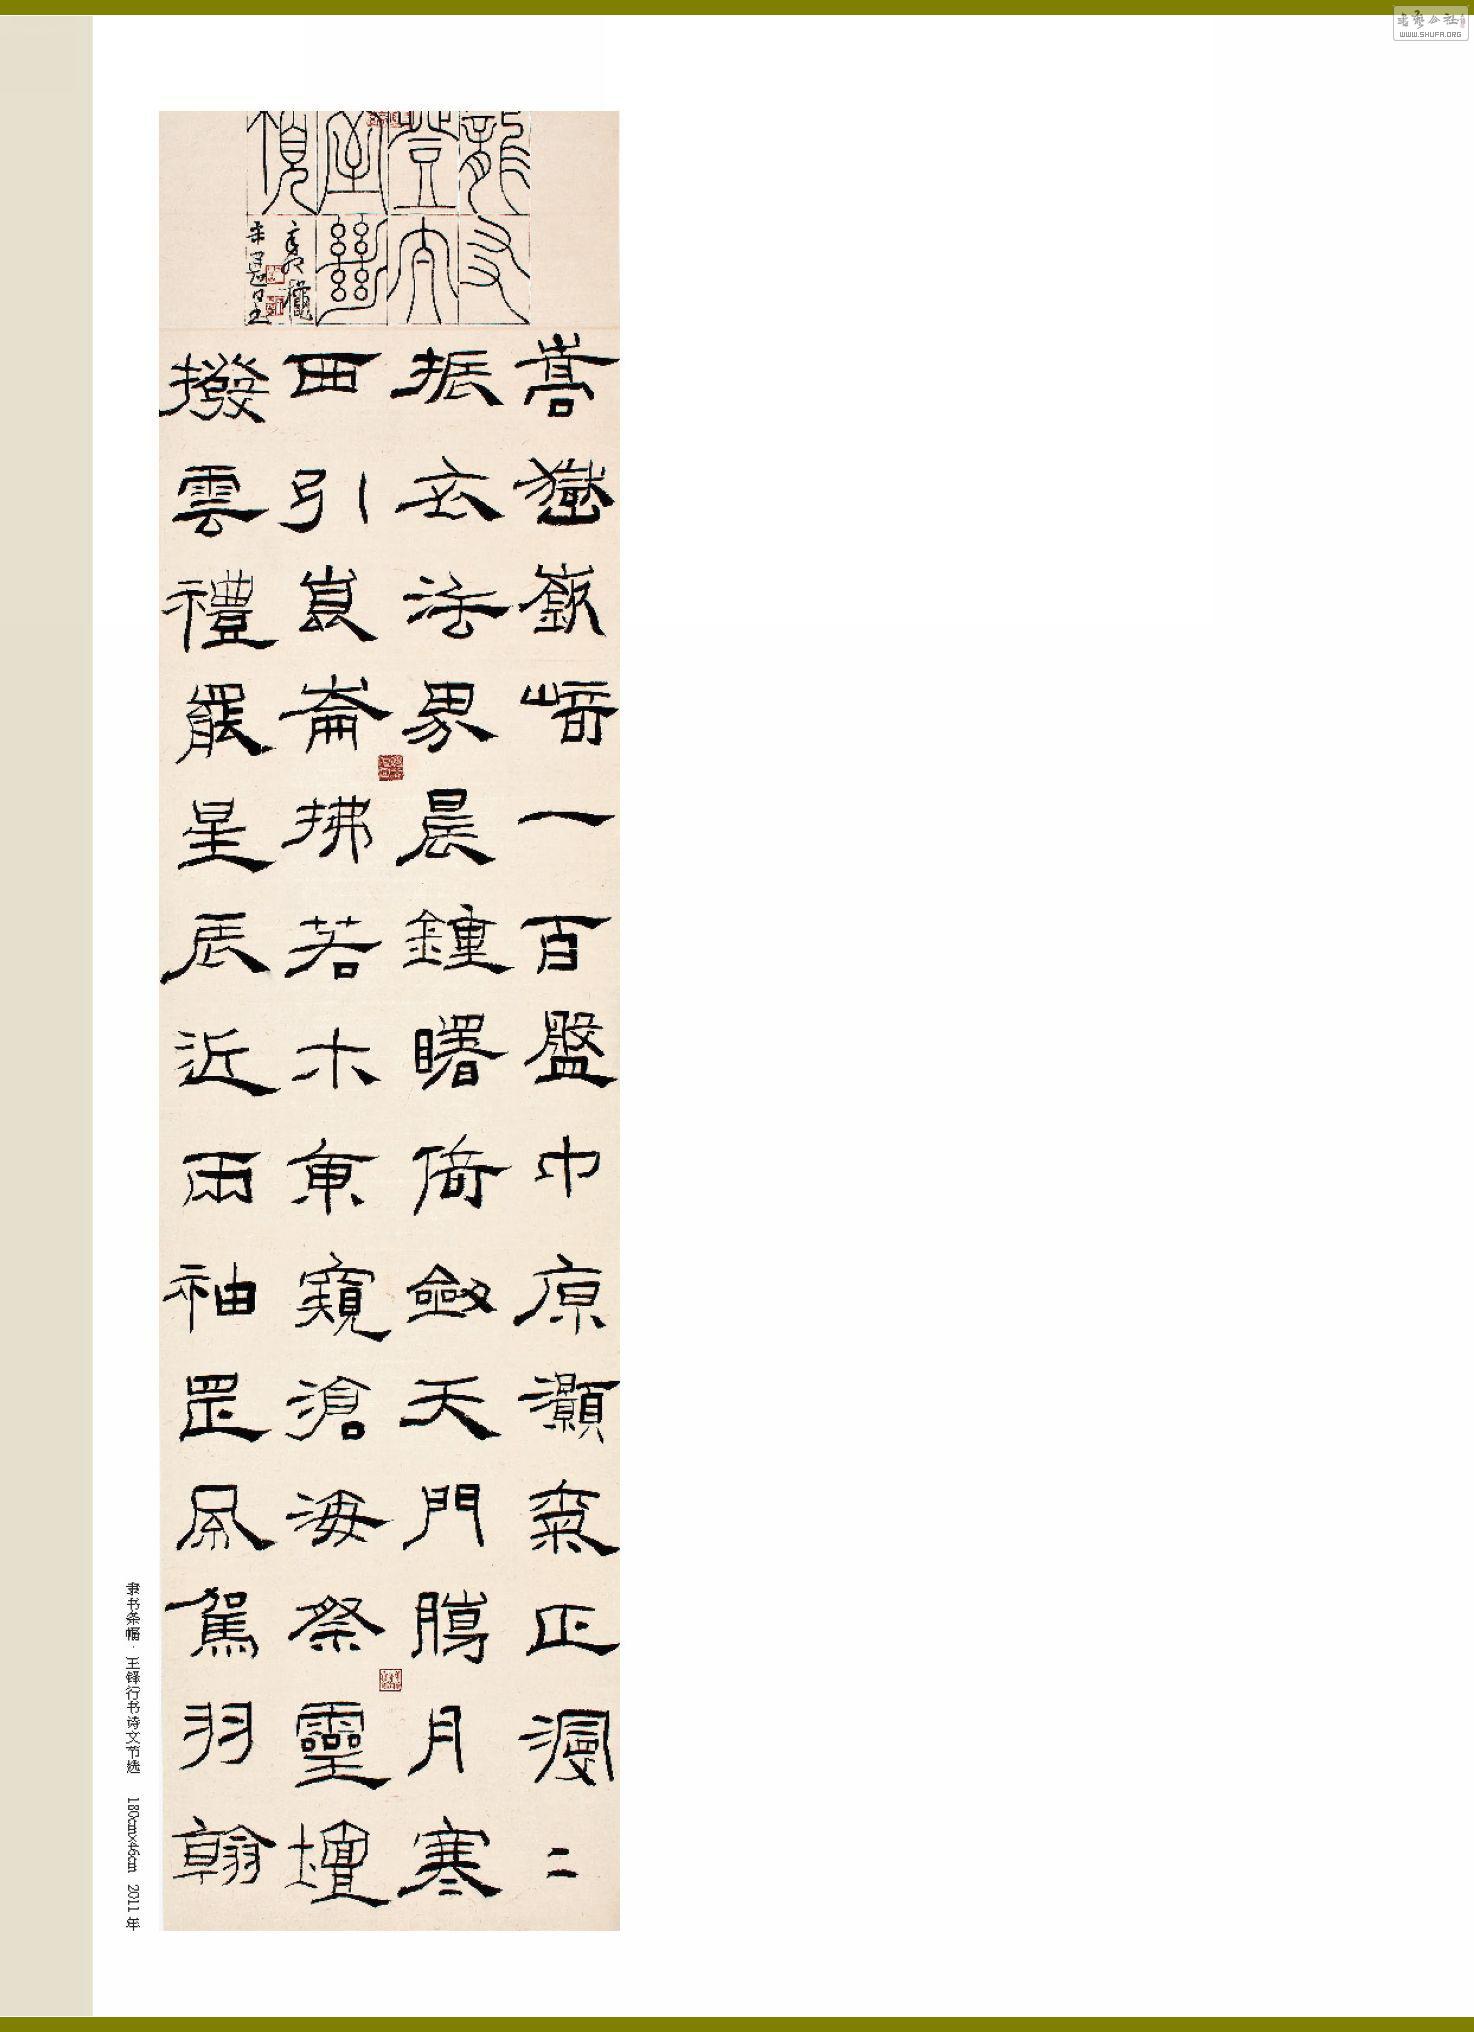 龍友登太室幽境
嵩嶽嶔﨑一百盤巾凉灝氣正漫二
振衣法界晨鍾曙倚劒天門臈月寒
西引崑崙拂若木東窺滄海祭靈壇
撥雲禮罷星辰近兩袖罡風駕羽翰
隶书条幅·王铎行书诗文节选 180cm×46cm 2011年
书艺公社
WWW.SHUFA.ORG